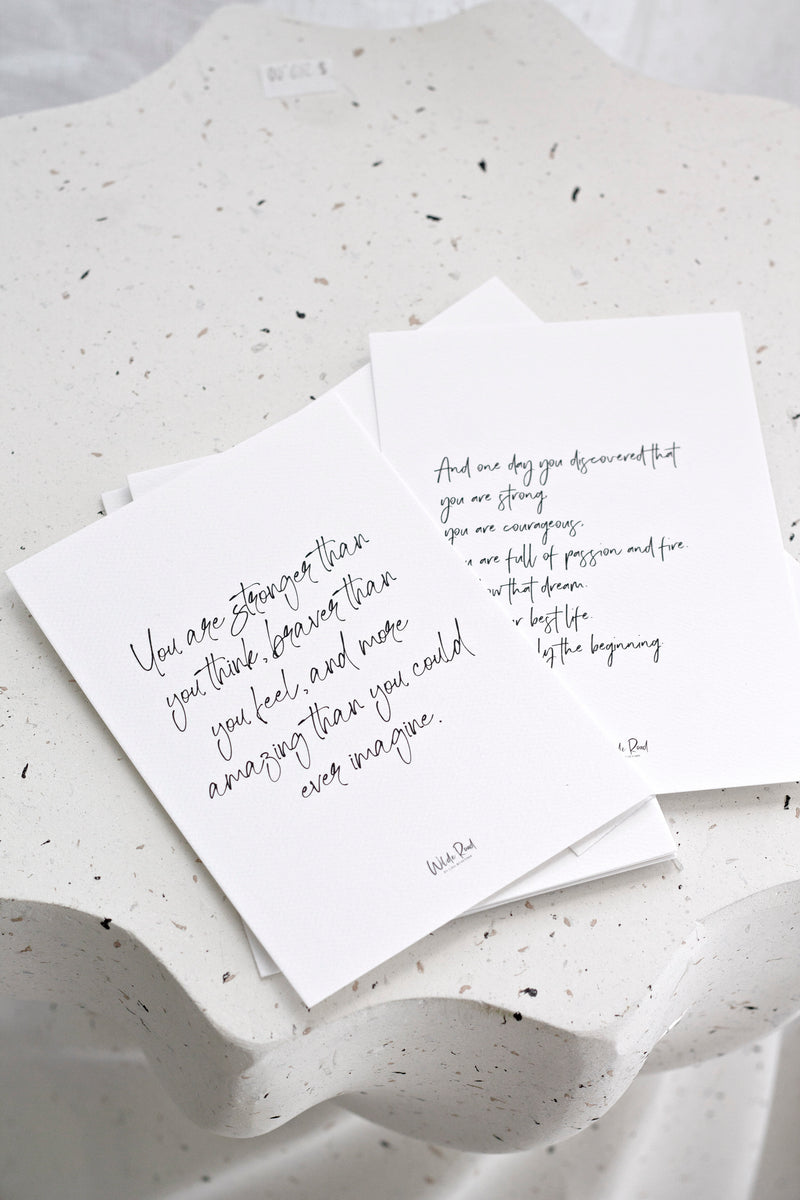 You are stronger than
you think, braver than
you feel, and more
amazing than you could
ever imagine.
Wilde Road
And one day you discovered that
you are strong.
you are courageous.
are full of passion and fire.
that dream.
best life.
the beginning.
Road